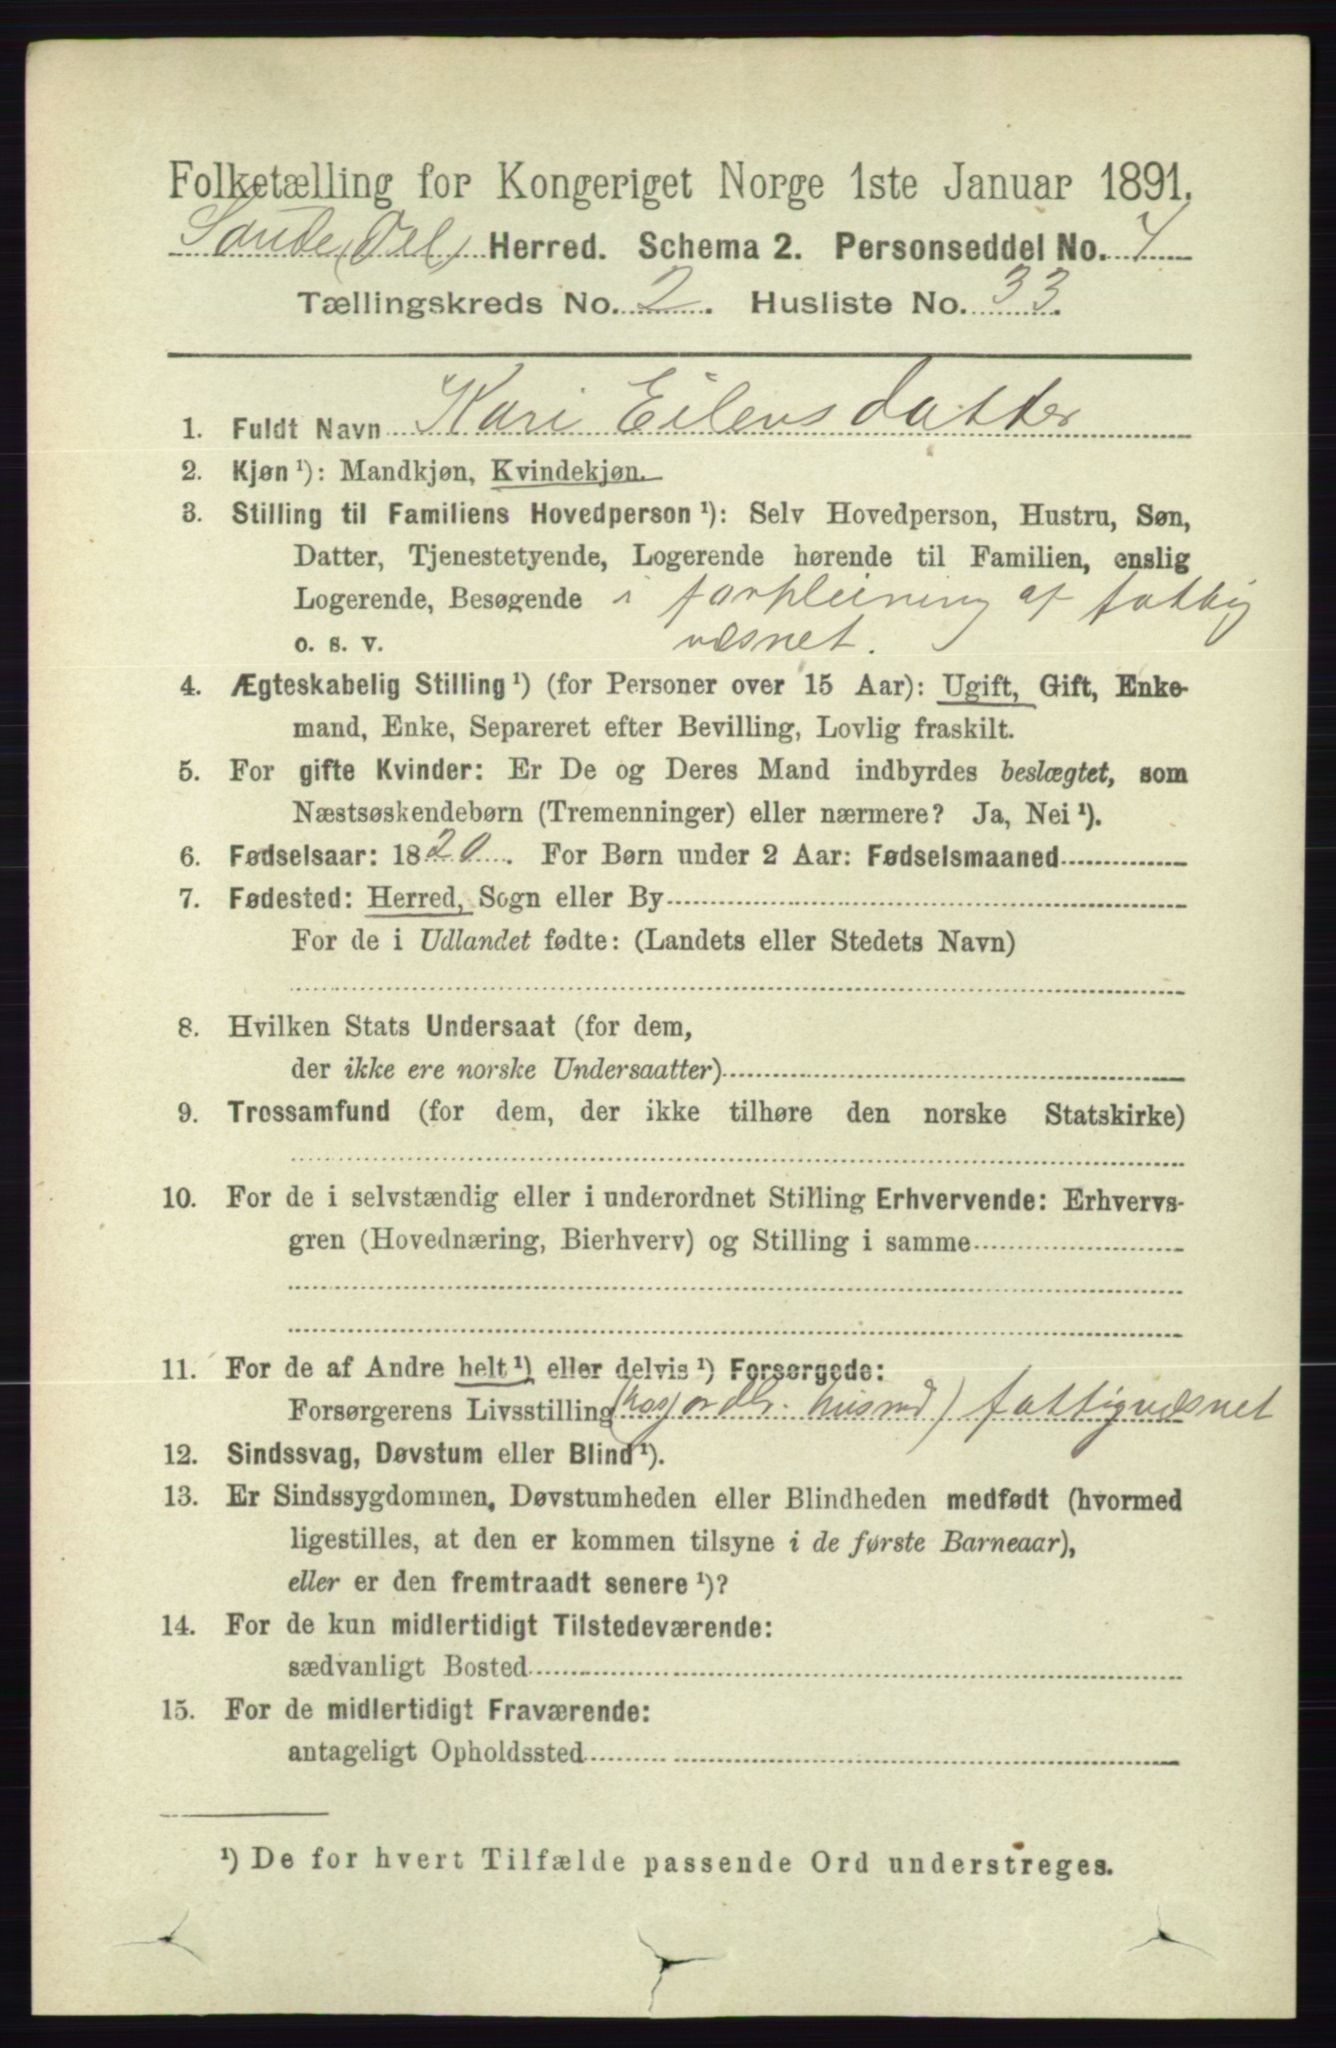 Folketælling for Kongeriget Norge 1ste Januar 1891.
Herred. Schema 2. Personseddel No.
Tællingskreds No. 2. Husliste No. 33.
1. Fuldt Navn Kari Eilevsdatter
2. Kjøn ¹): Mandkjøn, Kvindekjøn.
3. Stilling til Familiens Hovedperson ¹): Selv Hovedperson, Hustru, Søn,
Datter, Tjenestetyende, Logerende hørende til Familien, enslig
Logerende, Besøgende i forpleining af fattig
o. s. v. væsnet.
4. Ægteskabelig Stilling ¹) (for Personer over 15 Aar): Ugift, Gift, Enke-
mand, Enke, Separeret efter Bevilling, Lovlig fraskilt.
5. For gifte Kvinder: Er De og Deres Mand indbyrdes beslægtet, som
Næstsøskendebørn (Tremenninger) eller nærmere? Ja, Nei ¹).
6. Fødselsaar: 1820. For Børn under 2 Aar: Fødselsmaaned
7. Fødested: Herred, Sogn eller By
For de i Udlandet fødte: (Landets eller Stedets Navn)
8. Hvilken Stats Undersaat (for dem,
der ikke ere norske Undersaatter)
9. Trossamfund (for dem, der ikke tilhøre den norske Statskirke)
10. For de i selvstændig eller i underordnet Stilling Erhvervende: Erhvervs-
gren (Hovednæring, Bierhverv) og Stilling i samme
11. For de af Andre helt ¹) eller delvis ¹) Forsørgede:
Forsørgerens Livsstilling (hos husmd) fattigvæsnet
12. Sindssvag, Døvstum eller Blind ¹).
13. Er Sindssygdommen, Døvstumheden eller Blindheden medfødt (hvormed
ligestilles, at den er kommen tilsyne i de første Barneaar),
eller er den fremtraadt senere ¹)?
14. For de kun midlertidigt Tilstedeværende:
sædvanligt Bosted
15. For de midlertidigt Fraværende:
antageligt Opholdssted
¹) De for hvert Tilfælde passende Ord understreges.